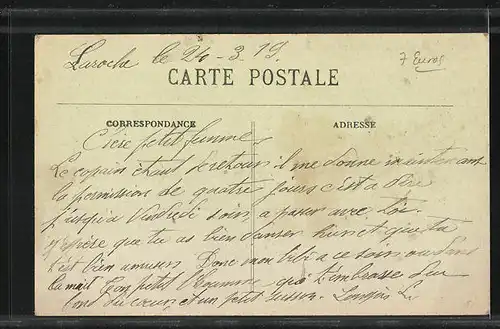 Laroche le 24-3-19.
7 Euros
CARTE POSTALE
CORRESPONDANCE
ADRESSE
Chère petit femme,
Le copain étant de retour il me donne maintenant
la permission de quatre jours c'est a dire
jusqu'a Vendredi soir a passer avec toi.
J'espère que tu as bien danser hier et que tu
t'est bien amuser. Donc mon bébé a ce soir ou dans
la nuit Ton petit homme qui t'embrasse du
fond du coeur et un petit